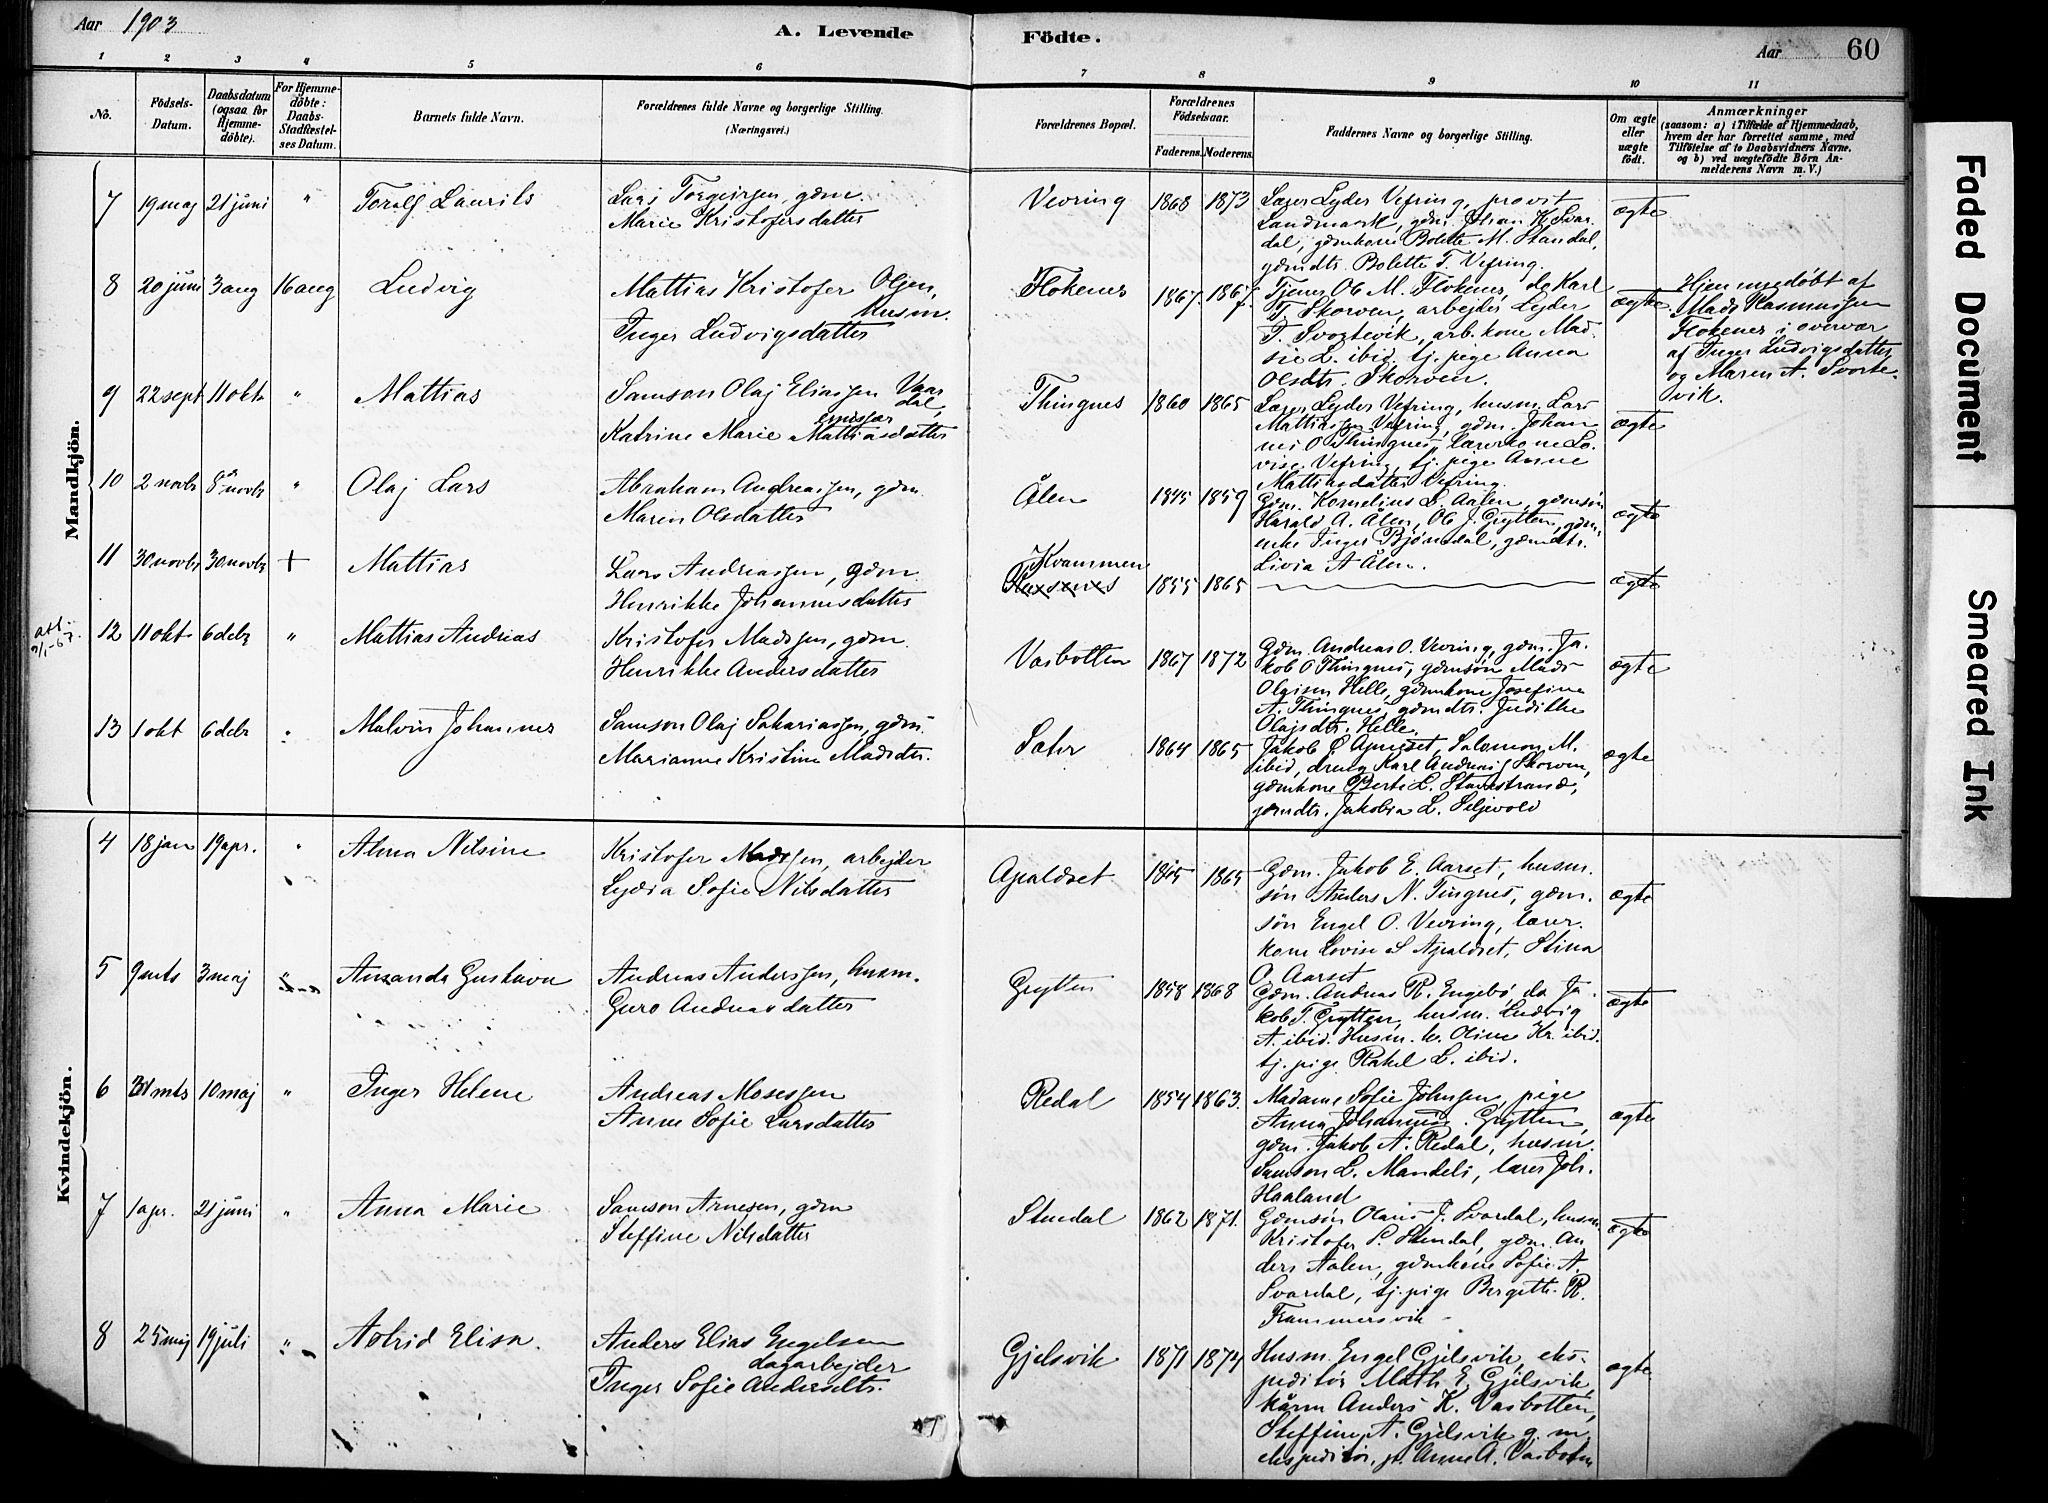 Aar 1903
A. Levende
Födte.
Aar
60
1 2 3 4 5 6 7 8 9 10 11
No.
Födsels-Datum.
Daabsdatum (ogsaa for Hjemme-döbte).
For Hjemme-döbte: Daabs-Stadfæstel-ses Datum.
Barnets fulde Navn.
Forældrenes fulde Navne og borgerlige Stilling.
(Næringsvei.)
Forældrenes Bopæl.
Forældrenes Födselsaar.
Faderens. Moderens.
Faddernes Navne og borgerlige Stilling.
Om ægte eller uægte födt.
Anmærkninger
(saasom: a) i Tilfælde af Hjemmedaab,
hvem der har forrettet samme, med
Tilföielse af to Daabsvidners Navne.
og b) ved uægtefödte Börn An-
melderens Navn m. V.)
Mandkjön.
7 19 maj 21 juni " Toralf Laurits
Lars Torgeirsen, gdm.
Marie Kristofersdatter
Vevring 1868 1873
Lærer Lyder Vefring, provit
Landmark, gdm. Johan K. Svar
dal, gdmkone Bolette M. Standal,
gdmdtr. Bolette T. Vefring.
ægte
8 20 juni 3 aug 16 aug Ludvig
Mattias Kristofer Olsen,
Husm.
Inger Ludvigsdatter
Flokenes 1867. 1867.
Tjener Ole M. Flokenes, do Karl
T. Skorven, arbejder Lyder
T. Svortevik, arb. kone Mad-
sie L. ibid. tj. pige Anna
Olsdtr. Skorven.
ægte
Hjemmedøbt af
Mads Rasmussen
Flokenes i overvær
af Inger Ludvigsdatter
og Maren A. Svorte-
vik.
9 22 sept 11 okt " Mattias
Samson Olaj Eliassen Vaar
dal,
Katrine Marie Mattiasdatter
Thingnes 1860 1865
Lærer Lyder Vefring, husm. Lars
Mattiassen Vefring, gdm. Johan
nes O Thingnes, lærerkone Lo-
vise Vefring, tj. pige Anne
Mattiasdatter Vefring.
ægte
10 2 novbr 8 novbr " Olaj Lars
Abraham Andreassen, gdm.
Maren Olsdatter
Ålen 1845 1859
Gdm. Kornelius L. Aalen, gdmsøn
Harald A. Ålen, Ole J. Grytten, gdm,
enke Inger Bjørndal, gdmdtr.
Livia A Ålen.
ægte
11 30 novbr 30 novbr + Mattias
Lars Andreassen, gdm.
Henrikke Johannesdatter
Kvammen
1855 1865
ægte
12 11 okt 6 debr " Mattias Andreas
Kristofer Madssen, gdm.
Henrikke Andersdatter
Vasbotten 1867 1872
Gdm. Andreas O. Vevring, gdm. Ja-
kob O Thingnes, gdmsøn Mads
Olaisen Helle, gdmkone Josefine
A. Thingnes, gdmdtr. Judikke
Olajsdtr. Helle.
ægte
13 1 okt 6 debr " Malvin Johannes
Samson Olaj Sakariassen, gdm.
Marianne Kristine Madsdtr.
Sætr 1864 1865
Jakob Apneset, Salomon M.
ibid, dreng Karl Andreas Skorven,
gdmkone Berte L. Stavestrand,
gdmdtr. Jakobia L. Seljevold
ægte
Kvindekjön.
4 18 jan 19 apr. " Alma Nilsine
Kristofer Madssen, arbejder
Lydia Sofie Nilsdatter
Apaldset 1865
Gdm. Jakob E. Aarset, husm.
søn Anders N. Tingnes, gdm.
søn Engel O. Vevring, lærer
kone Lovise S Apaldset, Stina
O. Aarset
ægte
5 9 mts 3 maj " Amanda Gustava
Andreas Anderssen, husm.
Guro Andreasdatter
Grytten 1858 1868
Gdm. Andreas R. Engebø, do Ja-
kob T. Grytten, husm. Ludvig
A. ibid. Husm. k. Oline Kr. ibid.
tj. pige Rakel L. ibid.
ægte
6 31 mts 10 maj " Inger Helene
Andreas Mosessen
Anne Sofie Larsdatter
Redal 1854 1863.
Madame Sofie Johnsen, pige
Anna Johannesd. Grytten,
gdm. Jakob A. Redal, husm.
Samson L. Mandels, lærer Joh.
Haaland
ægte
7 1 apr. 21 juni " Anna Marie
Samson Arnesen, gdm
Steffine Nilsdatter
Stendal 1862 1871.
Gdmsøn Olaus J. Svardal, husm.
Kristofer S. Stendal, gdm. An
ders Aalen, gdmkone Sofie A.
Svardal, tj. pige Bergitte R.
Frammersvik
ægte
8 25 maj 19 juli " Astrid Elisa.
Anders Elias Engelsen
dagarbejder
Inger Sofie Andersdtr.
Gjelsvik 1871 1874
Husm. Engel Gjelsvik, eks-
peditør Math. E. Gjelsvik,
kårm Anders K. Vasbotten,
Steffine A. Gjelsvik g. m.
ekspeditør, p. Anne A. Vasbotn
ægte
Faded Document
Smeared Ink